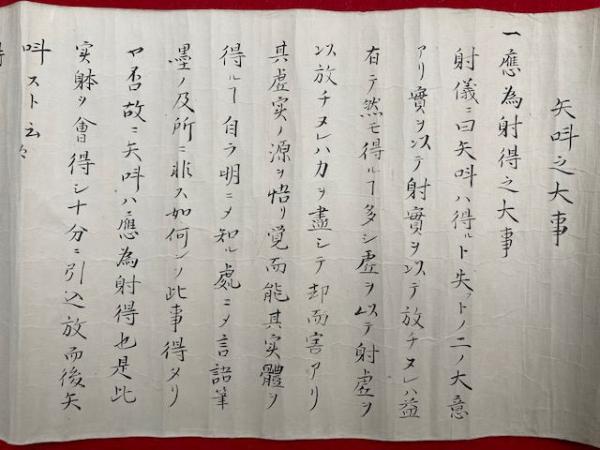 矢呌之大事
一應為射得之大事
射儀ニ曰矢呌ハ得ルト失フトノ二ノ大意
アリ實ヲ以テ射實ヲ以テ放チヌレハ益
有テ然モ得ルヿ多シ虚ヲ以テ射虚ヲ
以放チヌレハ力ヲ盡シテ却而害アリ
其虚実ノ源ヲ悟リ覚而能其実體ヲ
得ルヿ自ラ明ニメ知ル處ニメ言語筆
墨ノ及所ニ非ス如何ンソ此事得メリ
ヤ否故ニ矢呌ハ應為射得也是此
実躰ヲ會得シ十分ニ引込放而後矢
呌スト云々